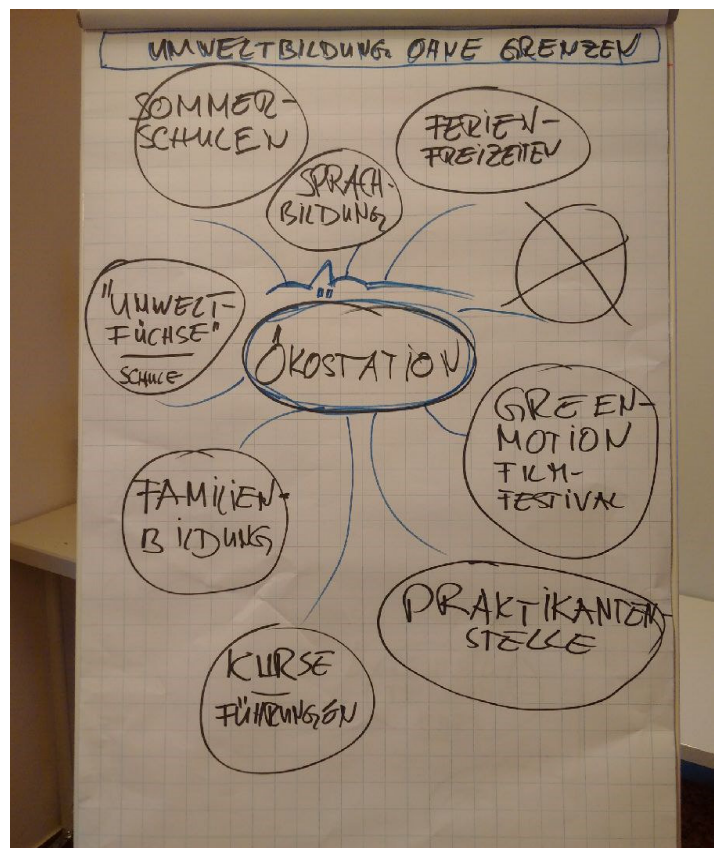 UMWELTBILDUNG OHNE GRENZEN
SOMMER-
SCHULEN
FERIEN-
FREIZEITEN
SPRACH-
BILDUNG
"UMWELT-
FÜCHSE"
SCHULE
ÖKOSTATION
GREEN-
MOTION
FILM-
FESTIVAL
FAMILIEN-
BILDUNG
PRAKTIKANTEN
STELLE
KURSE
FÜHRUNGEN